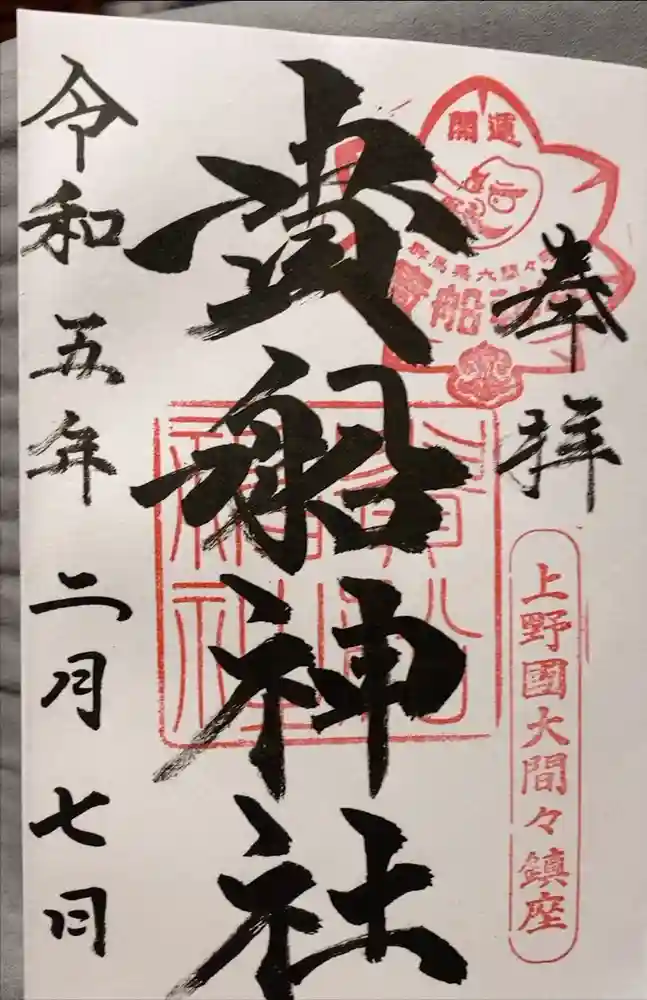 奉拝
開運
群馬県大間々町
貴船神社
上野國大間々鎮座
貴船神社
貴船神社
令和五年二月七日